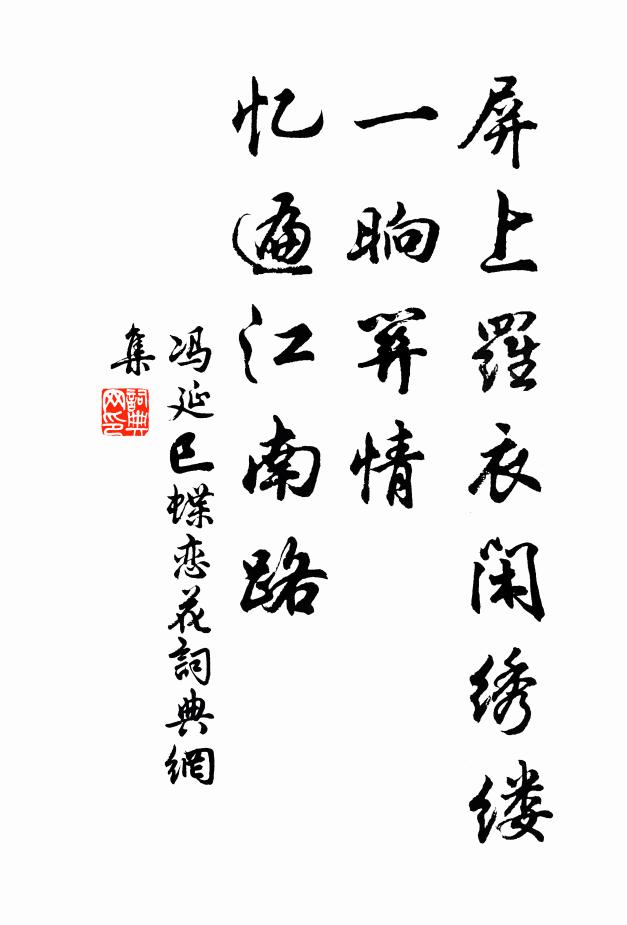 屏上羅衣閑绣缕
一晌关情
忆遍江南路
冯延巳蝶恋花詞典網
集
詞典网印